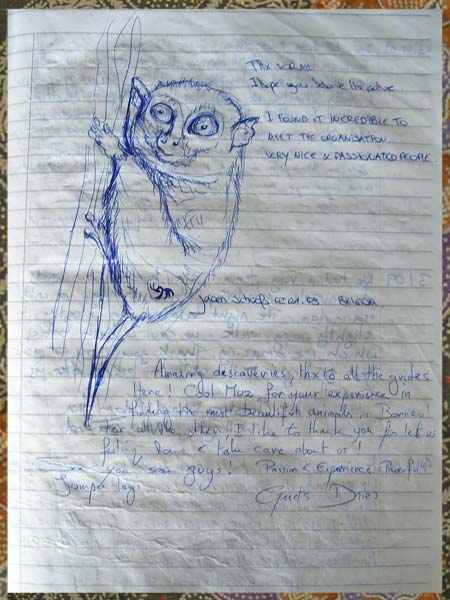 Thx for all
I hope you the nature
I FOUND IT INCREDIBLE TO
MEET THE ORGANISATION
VERY NICE & PASSIONATED PEOPLE
BELGIUM
Amazing discoveries, thx to all the guides
Here! Cool Muz, for your experience in
finding the most beautiful animals in Borneo!
For all the other I like to thank you for let us
feeling home & take care about us!
See you soon guys! Passion & Experience = Powerful
Jumpa lagi
Geerts Dries